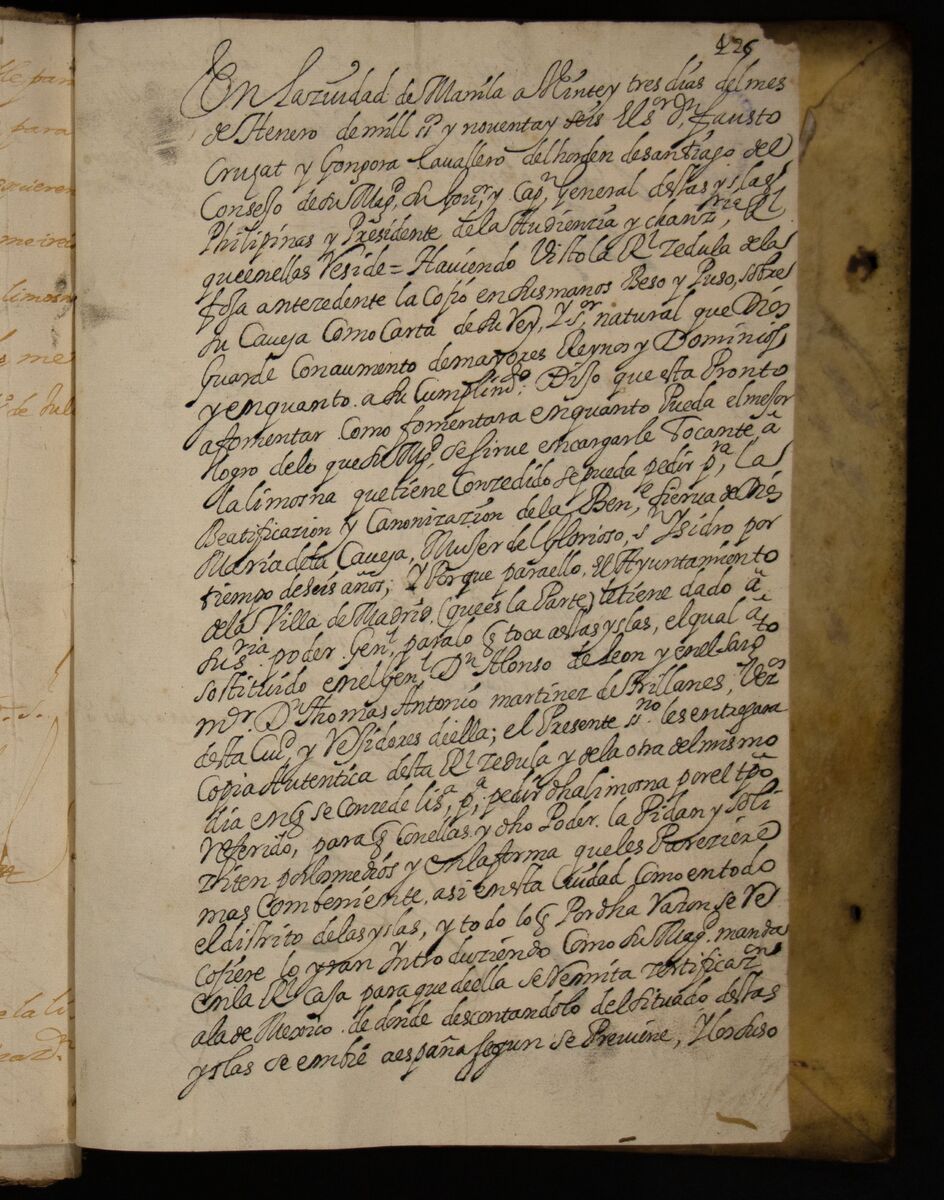 426
En la ziudad de Manila a Vinte y tres dias del mes
de Henero de mill ss y noventa y seis El sr Dn fausto
Cruzat y Gongora Cavallero del horden de santiago del
Consejo de su Magd, su Gour, y Capn General destas yslas
Philipinas y Presidente de la Audienzia y chanzria Rl
que en ellas Reside = Haviendo Visto la Rl zedula de las
foja antezedente la Cojio en sus manos Beso y Puso, sobre
su Caveza Como Carta de su Rey, Y sr, natural que Dios
Guarde Con aumento de mayores Reynos y Dominios
y en quanto a su Cumplimto: Dijo que esta Pronto
a fomentar Como fomentara en quanto Pueda el mejor
logro de lo que su Magd, se sirve encargarle Tocante, a
la limosna que tiene Conzedido se pueda pedir pra, la
Beatificazion y Canonizazion de la Bene, sierva de Dios
Maria de la Caveza, Muger del Glorioso, sn Ysidro por
tiempo de seis años; Y Porque para ello, El Ayuntamiento
de la Villa de Madrid, (que es la Parte) le tiene dado a
su sria. poder. Genl, para lo q toca a estas yslas, el qual a
sostituido en el Genl, Dn Alonso de Leon y en el sarto
mor. Dn Thomas Antonio martinez de Trillanes, Vezos
desta Ciud, y Rejidores de ella; el Presente ssno. les entregara
Copia Autentica desta Rl zedula y de la otra del mismo
dia en q se Conzede liza, pa, pedir dha limosna por el tpo
referido, para q Con ellas y dho Poder. la Pidan y soli
ziten por los medios y en la forma que les Pareziere
mas Combeniente. asi en esta Ciudad Como en todo
el distrito de las yslas, y todo lo q Por dha Razon se Re
cojiere lo yran Introduziendo Como su Magd. manda
en la Rl Caja para que de ella se Remita zertificazn
a la de Mexico. de donde descontandolo del situado destas
yslas se embie a españa segun se Previene, Y lo Puso